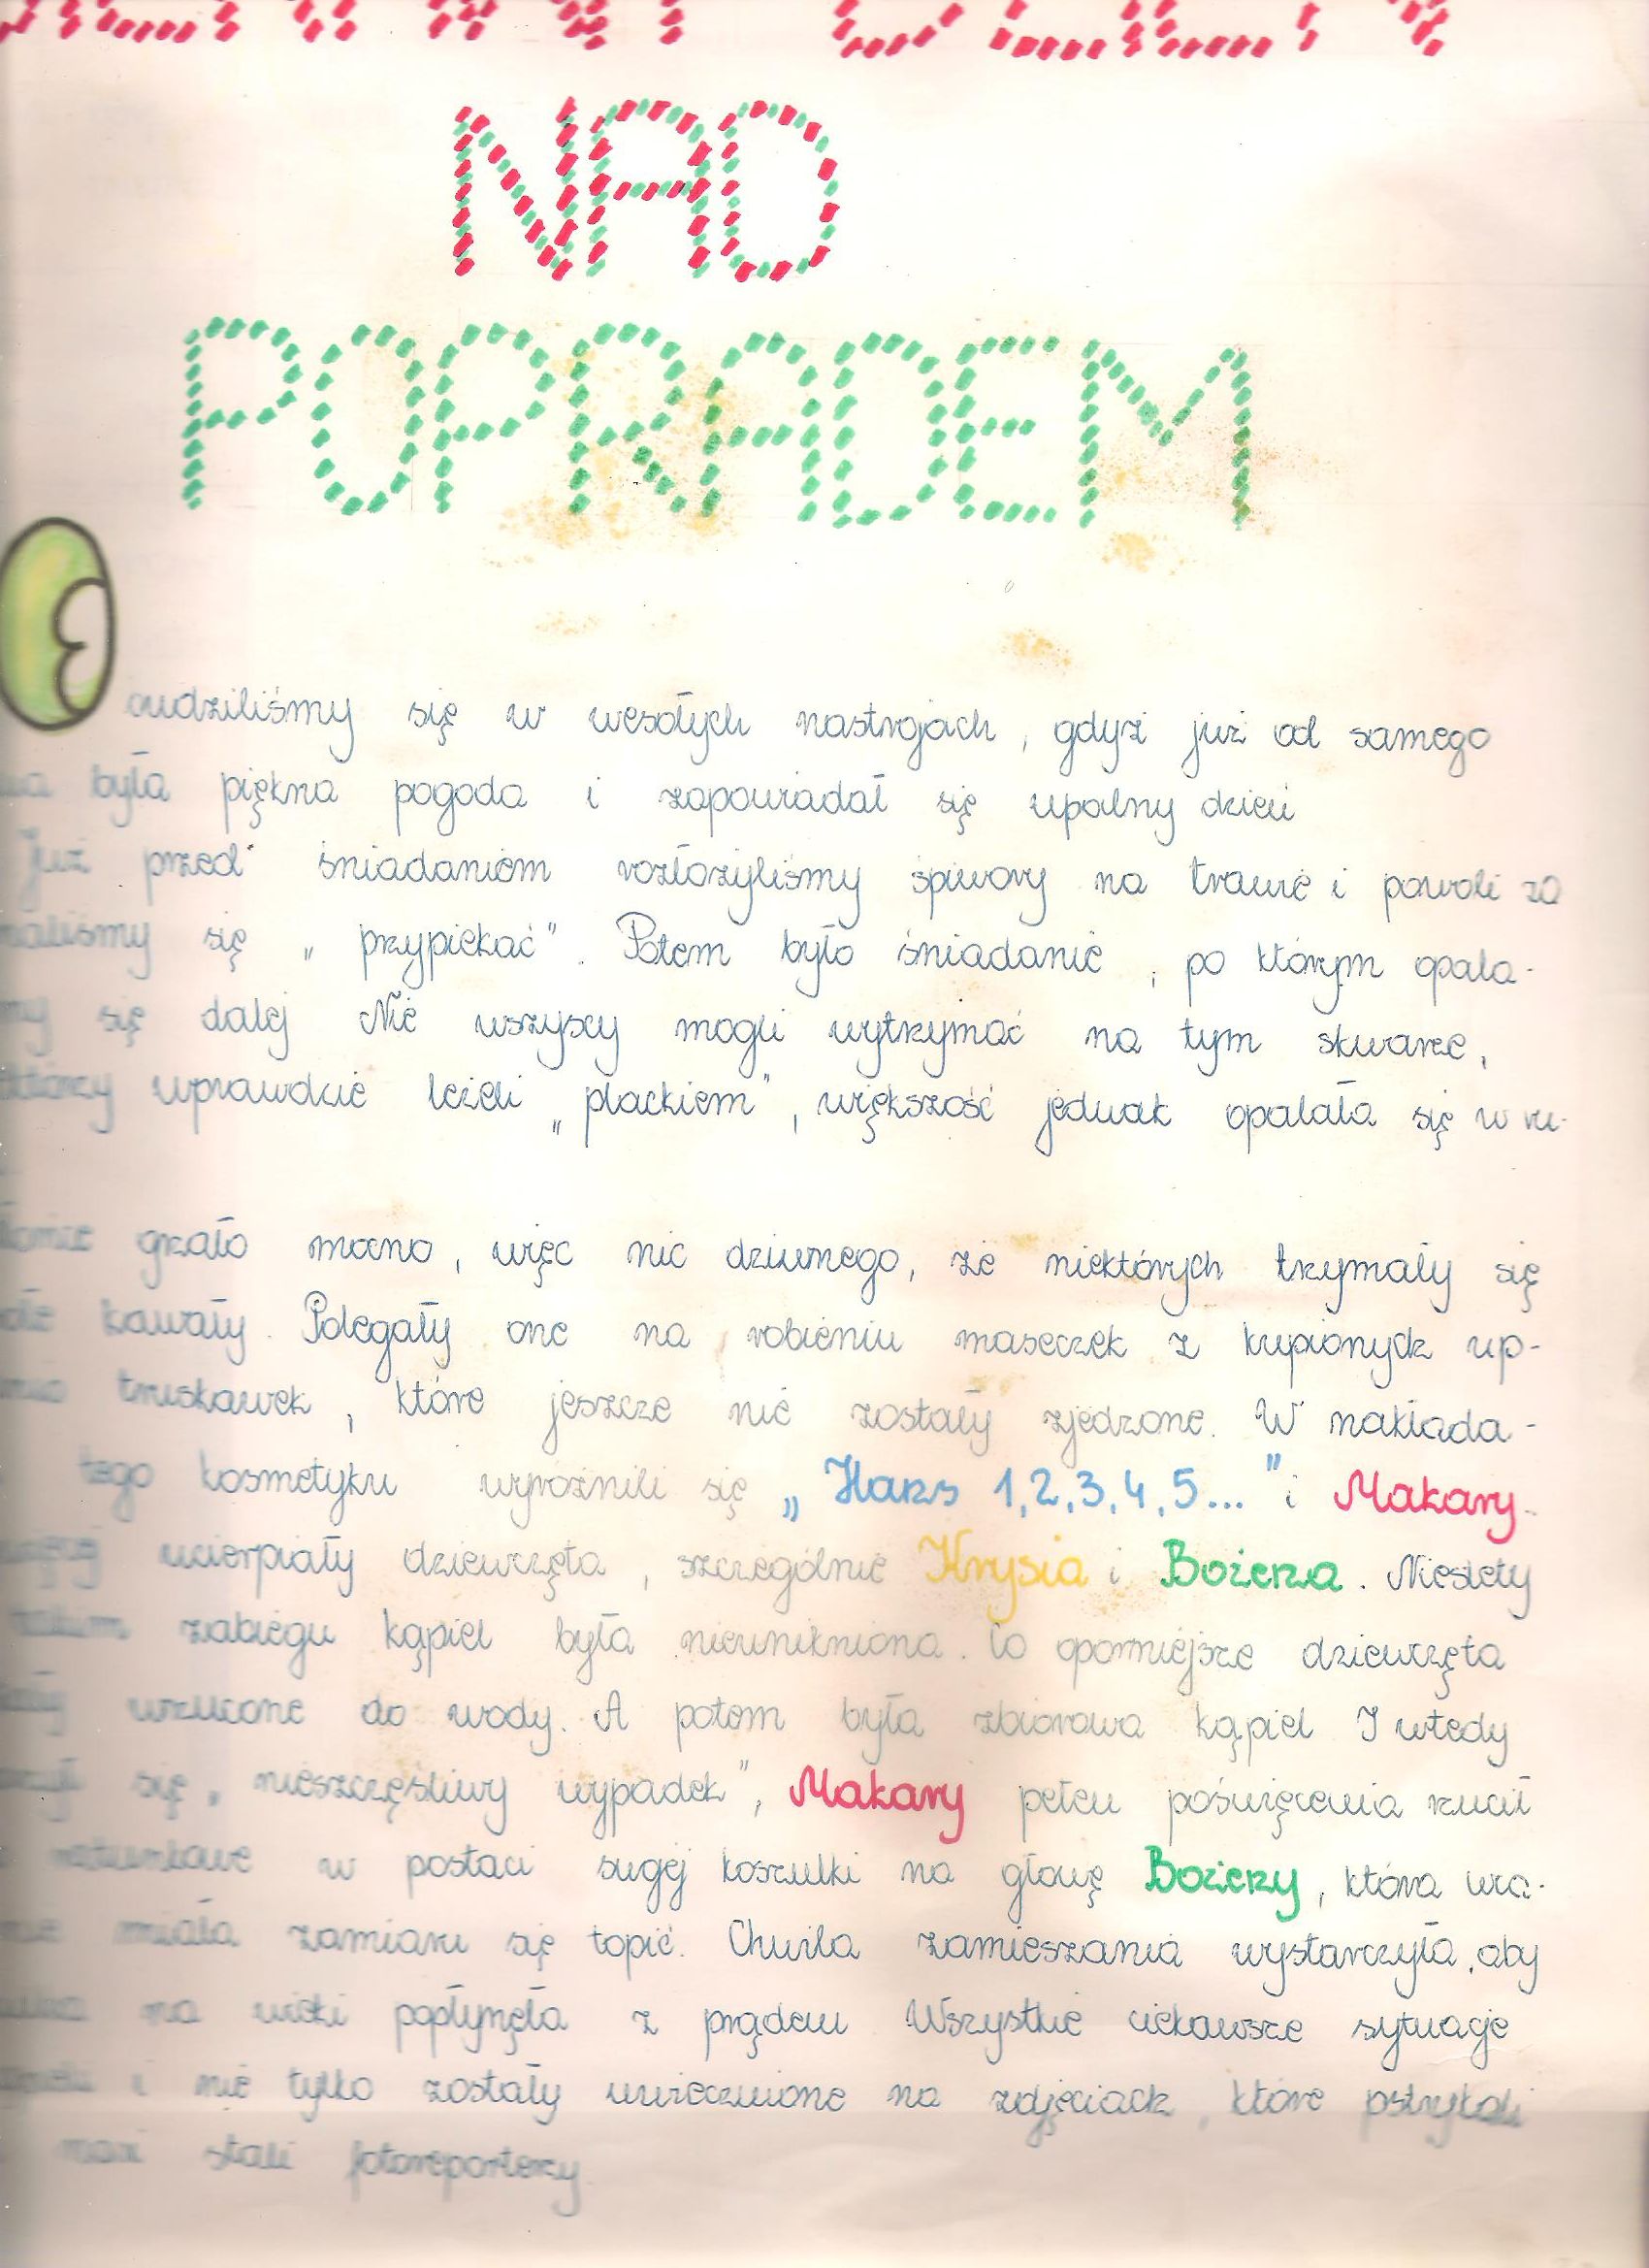 NAD
POPRADEM
budziliśmy się w wesołych nastrojach, gdyż już od samego
była piękna pogoda i zapowiadał się upalny dzień
Już przed śniadaniem rozłożyliśmy śpiwory na trawie i powoli za
naliśmy się „przypiekać”. Potem było śniadanie, po którym opala-
my się dalej Nie wszyscy mogli wytrzymać na tym skwarze,
którzy wprawdzie leżeli „plackiem”, większość jednak opalała się w ru-
grzało mocno, więc nic dziwnego, że niektórych trzymały się
kawały. Polegały one na robieniu maseczek z kupionych up-
truskawek, które jeszcze nie zostały zjedzone. W nakłada-
tego kosmetyku wyróżnili się „Hans 1,2,3,4,5...” i Makary.
ucierpiały dziewczęta, szczególnie Krysia i Bożena. Niestety
takim zabiegu kąpiel była nieunikniona. Co oporniejsze dziewczęta
wrzucone do wody. A potem była zbiorowa kąpiel I wtedy
się „nieszczęśliwy wypadek”, Makary pełen poświęcenia rzucił
ratunkowe w postaci swojej koszulki na głowę Bożeny, która wca-
nie miała zamiaru się topić. Chwila zamieszania wystarczyła, aby
na wieki popłynęła z prądem Wszystkie ciekawsze sytuacje
i nie tylko zostały uwiecznione na zdjęciach, które pstrykali
nasi stali fotoreporterzy.